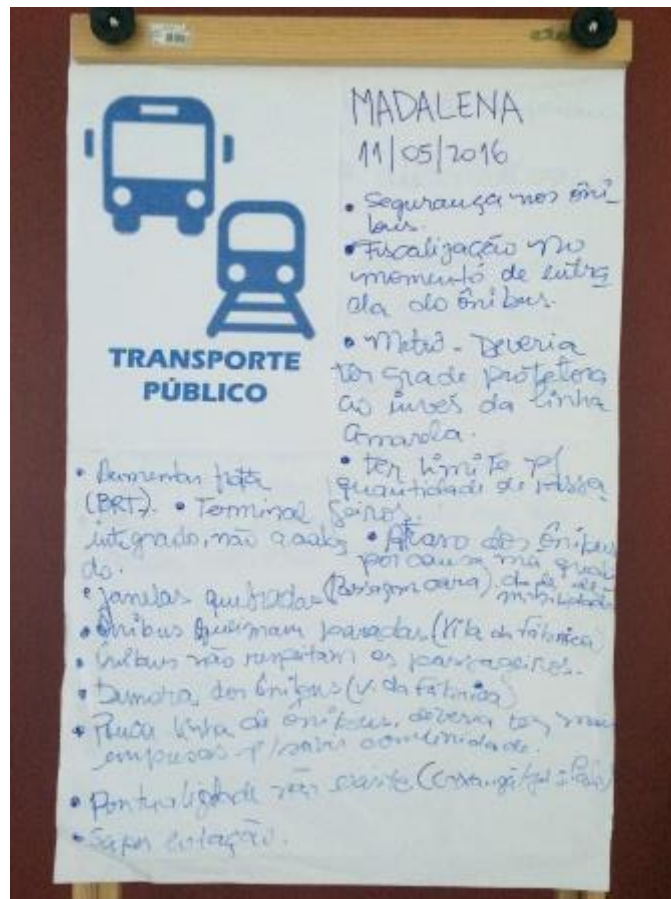 MADALENA
11/05/2016
• Segurança nos ôni-
bus.
• Fiscalização no
momento de entra
da do ônibus.
• Metrô - Deveria
ter grade protetora
ao invés da linha
amarela.
• Ter limite p/
quantidade de passa
geiros.
TRANSPORTE
PÚBLICO
• Aumentar frota
(BRT). • Terminal
integrado, não acaba
do.
• Atraso dos ônibus
por causa má quali
dade de
mobilidade
• Janelas quebradas (Passagem cara).
• Ônibus queimam paradas (Vila da Fábrica)
• Ônibus não respeitam os passageiros.
• Demora dos ônibus (V. da Fábrica)
• Pouca linha de ônibus, deveria ter mais
empresas p/ comunidade.
• Pontualidade não existe
• Super lotação.